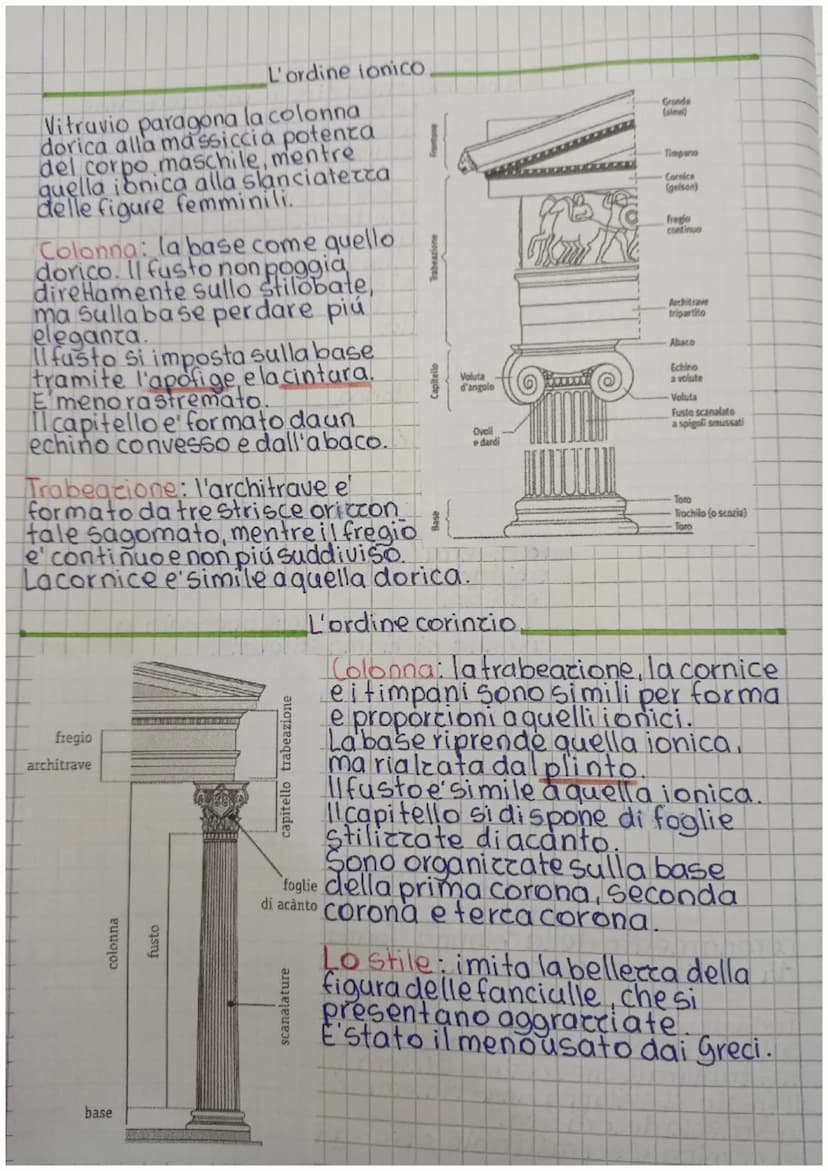 L'ordine ionico
Vitruvio paragona la colonna
dorica alla massiccia potenza
del corpo maschile, mentre
quella ionica alla slanciatezza
delle figure femminili.
Colonna: la base come quello
dorico. Il fusto non poggia
direttamente sullo stilobate,
ma sulla base per dare piú
eleganza.
Il fusto si imposta sulla base
tramite l'apofige e la cintura.
E' meno rastremato.
Il capitello e' formato da un
echino convesso e dall'abaco.
Trabeazione: l'architrave e'
formato da tre strisce orizzon
tale sagomato, mentre il fregio
e' continuo e non piú suddiviso.
La cornice e' simile a quella dorica.
Frontone
Trabeazione
Capitello
Base
Gronda
(sima)
Timpano
Cornice
(geison)
Fregio
continuo
Architrave
tripartito
Abaco
Echino
a volute
Voluta
Fusto scanalato
a spigoli smussati
Voluta
d'angolo
Ovoli
e dardi
Toro
Trochilo (o scozia)
Toro
L'ordine corinzio
fregio
architrave
trabeazione
capitello
foglie
di acànto
colonna
fusto
scanalature
base
Colonna: la trabeazione, la cornice
e i timpani sono simili per forma
e proporzioni a quelli ionici.
La base riprende quella ionica,
ma rialzata dal plinto.
Il fusto e' simile a quella ionica.
Il capitello si dispone di foglie
stilizzate di acanto.
Sono organizzate sulla base
della prima corona, seconda
corona e terza corona.
Lo stile: imita la bellezza della
figura delle fanciulle, che si
presentano aggrazziate.
E' stato il meno usato dai Greci.